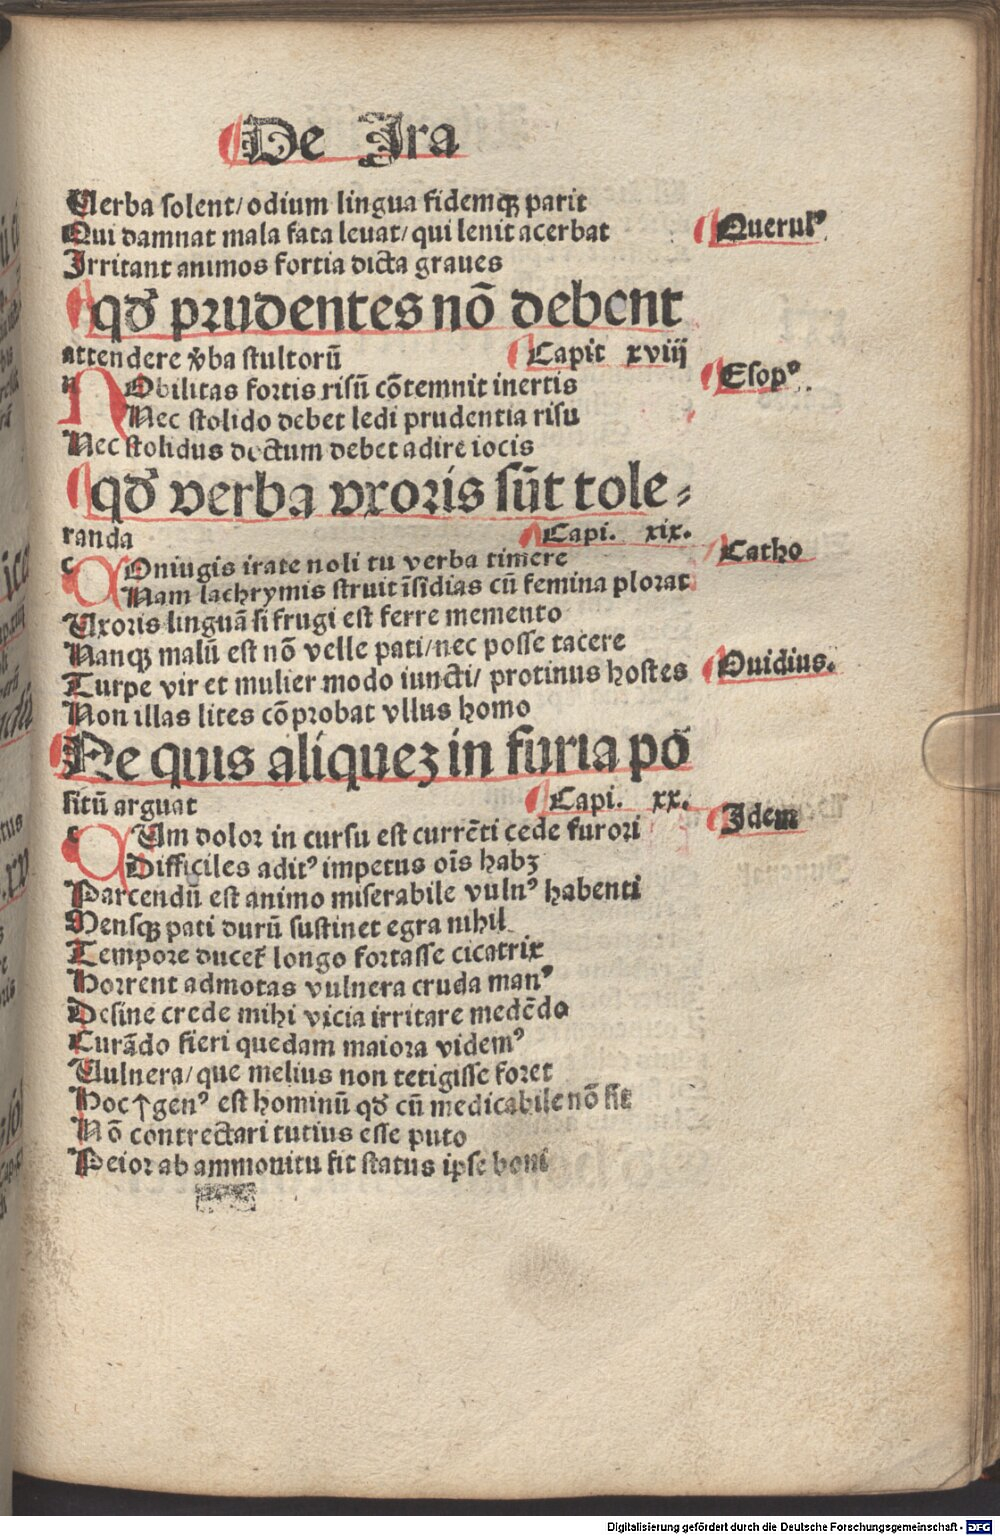 De Ira
Uerba solent/ odium lingua fidemqꝫ parit
Qui damnat mala fata leuat/ qui lenit acerbat
Querulꝰ
Irritant animos fortia dicta graues
qđ prudentes nō debent
attendere v̾ba stultorū Capit xviij
n Obilitas fortis risū cōtemnit inertis
Esopꝰ
Nec stolido debet ledi prudentia risu
Nec stolidus doctum debet adire iocis
qđ verba vxoris sūt tole⸗
randa Capi. xix.
c Oniugis irate noli tu verba timere
Catho
Nam lachrymis struit īsidias cū femina plorat
Uxoris linguā si frugi est ferre memento
Nanqꝫ malū est nō velle pati/ nec posse tacere
Turpe vir et mulier modo iuncti/ protinus hostes
Ouidius.
Non illas lites cōprobat vllus homo
Ne quis aliquez in furia pō
sitū arguat Capi. xx.
c Um dolor in cursu est currēti cede furori
Idem
Difficiles aditꝰ impetus oīs habꝫ
Parcendū est animo miserabile vulnꝰ habenti
Mensqꝫ pati durū sustinet egra nihil
Tempore ducet̾ longo fortasse cicatrix
Horrent admotas vulnera cruda manꝰ
Desine crede mihi vicia irritare medēdo
Curādo fieri quedam maiora videmꝰ
Uulnera/ que melius non tetigisse foret
Hoc ↑genꝰ est hominū qđ cū medicabile nō sit
Nō contrectari tutius esse puto
Peior ab ammonitu fit status ipse boni
Digitalisierung gefördert durch die Deutsche Forschungsgemeinschaft - DFG